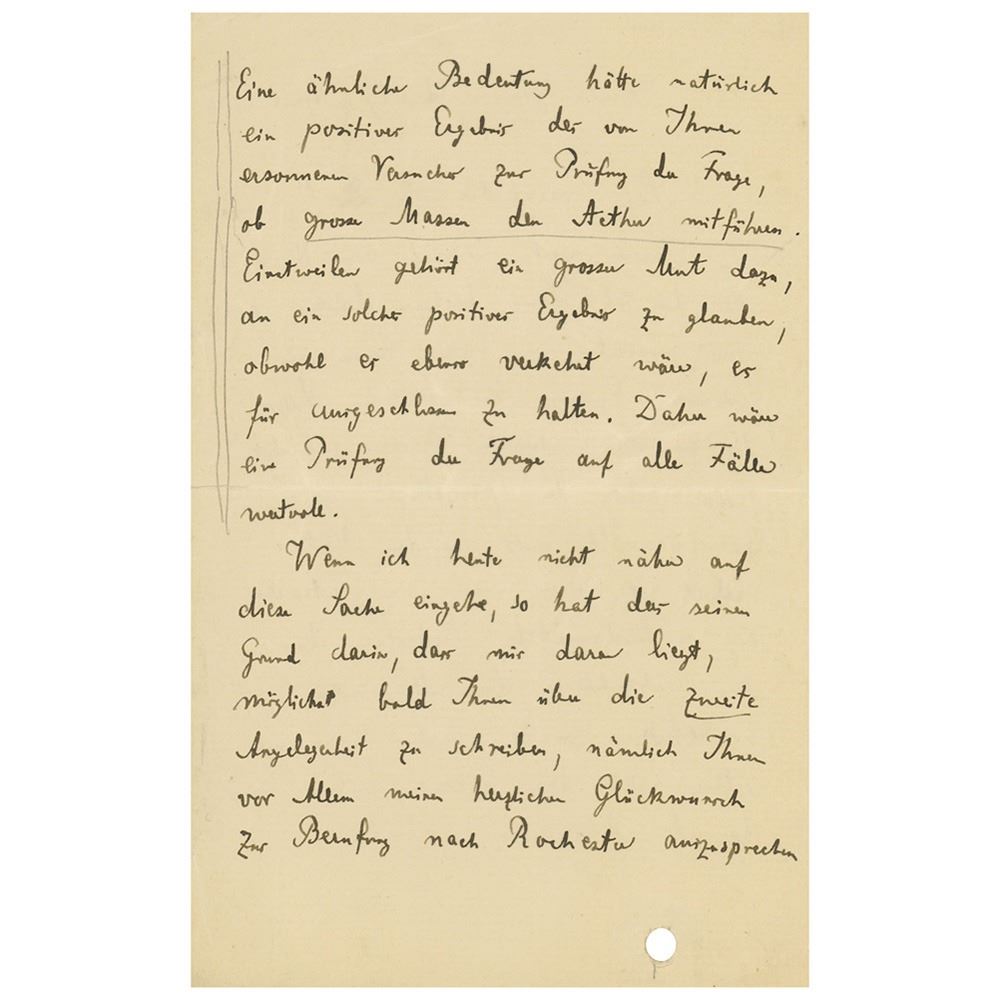 Eine ähnliche Bedeutung hätte natürlich
ein positives Ergebnis des von Ihnen
ersonnenen Versuches zur Prüfung der Frage,
ob grosse Massen den Aether mitführen.
Einstweilen gehört ein grosser Mut dazu,
an ein solches positives Ergebnis zu glauben,
obwohl es ebenso verkehrt wäre, es
für ausgeschlossen zu halten. Daher wäre
eine Prüfung der Frage auf alle Fälle
wertvoll.
Wenn ich heute nicht näher auf
diese Sache eingehe, so hat das seinen
Grund darin, dass mir daran liegt,
möglichst bald Ihnen über die zweite
Angelegenheit zu schreiben, nämlich Ihnen
vor Allem meinen herzlichen Glückwunsch
zur Berufung nach Rochester auszusprechen